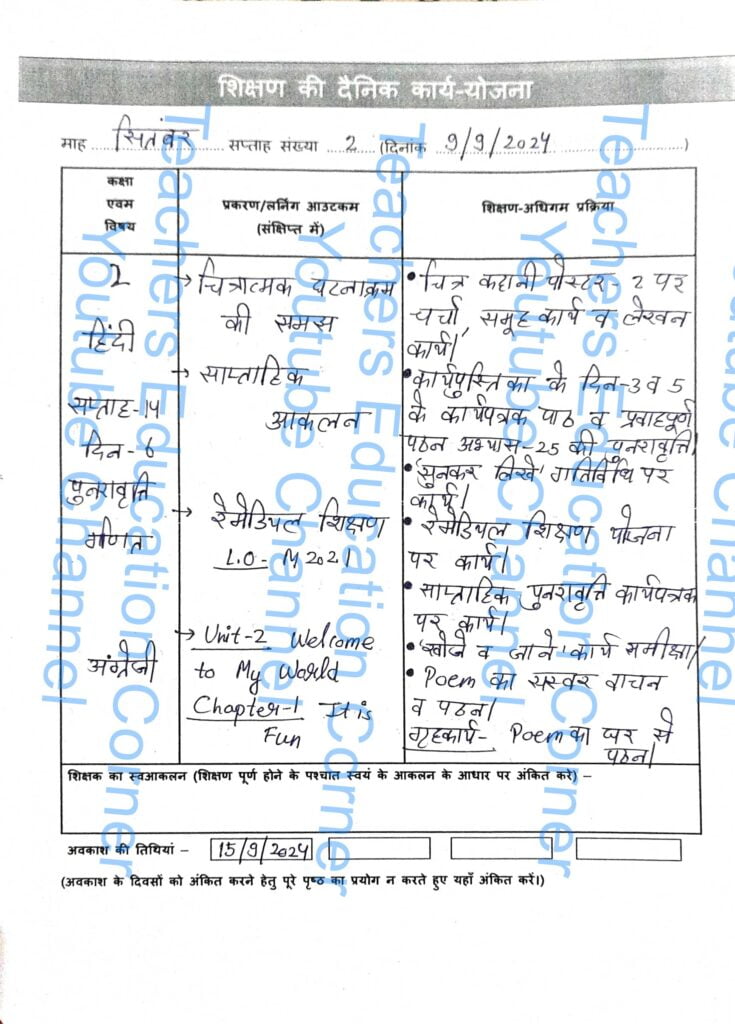 शिक्षण की दैनिक कार्य-योजना
माह सितंबर सप्ताह संख्या 2 (दिनाक 9/9/2024)
कक्षा
एवम
विषय
प्रकरण/लर्निंग आउटकम
(संक्षिप्त में)
शिक्षण-अधिगम प्रक्रिया
2
हिंदी
सप्ताह-14
दिन-6
पुनरावृत्ति
गणित
अंग्रेजी
→ चित्रात्मक घटनाक्रम
की समझ
→ साप्ताहिक
आकलन
→ रेमेडियल शिक्षण
L.O- M202.1
→ Unit-2 Welcome
to My World
Chapter-1 It is
Fun
• चित्र कहानी पोस्टर-2 पर
चर्चा, समूह कार्य व लेखन
कार्य।
• कार्यपुस्तिका के दिन-3 व 5
के कार्यपत्रक पाठ व प्रवाहपूर्ण
पठन अभ्यास-25 की पुनरावृत्ति।
• 'सुनकर लिखें' गतिविधि पर
कार्य।
• रेमेडियल शिक्षण योजना
पर कार्य।
• साप्ताहिक पुनरावृत्ति कार्यपत्रक
पर कार्य।
• 'खोजें व जाने' कार्य समीक्षा।
• Poem का सस्वर वाचन
व पठन।
गृहकार्य- Poem का घर से
पठन।
शिक्षक का स्वआकलन (शिक्षण पूर्ण होने के पश्चात स्वयं के आकलन के आधार पर अंकित करें) –
अवकाश की तिथियां – 15/9/2024
(अवकाश के दिवसों को अंकित करने हेतु पूरे पृष्ठ का प्रयोग न करते हुए यहाँ अंकित करें।)
Teachers Education Corner
Youtube Channel
Teachers Education Corner
Youtube Channel
Teachers Education Corner
Youtube Channel